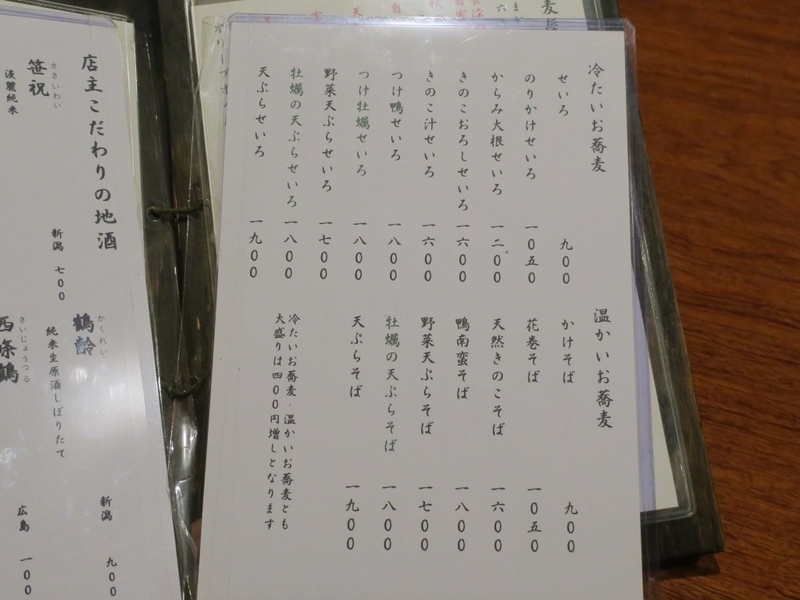 冷たいお蕎麦
せいろ 九00
のりかけせいろ 一0五0
からみ大根せいろ 一二00
きのこおろしせいろ 一六00
きのこ汁せいろ 一六00
つけ鴨せいろ 一八00
つけ牡蠣せいろ 一八00
野菜天ぷらせいろ 一七00
牡蠣の天ぷらせいろ 一八00
天ぷらせいろ 一九00
温かいお蕎麦
かけそば 九00
花巻そば 一0五0
天然きのこそば 一六00
鴨南蛮そば 一八00
野菜天ぷらそば 一七00
牡蠣の天ぷらそば 一八00
天ぷらそば 一九00
冷たいお蕎麦・温かいお蕎麦とも
大盛りは四00円増しとなります
店主こだわりの地酒
笹祝
ささいわい
淡麗純米
新潟 七00
鶴齢
かくれい
純米生原酒しぼりたて
新潟 九00
西條鶴
さいじょうつる
広島 一00